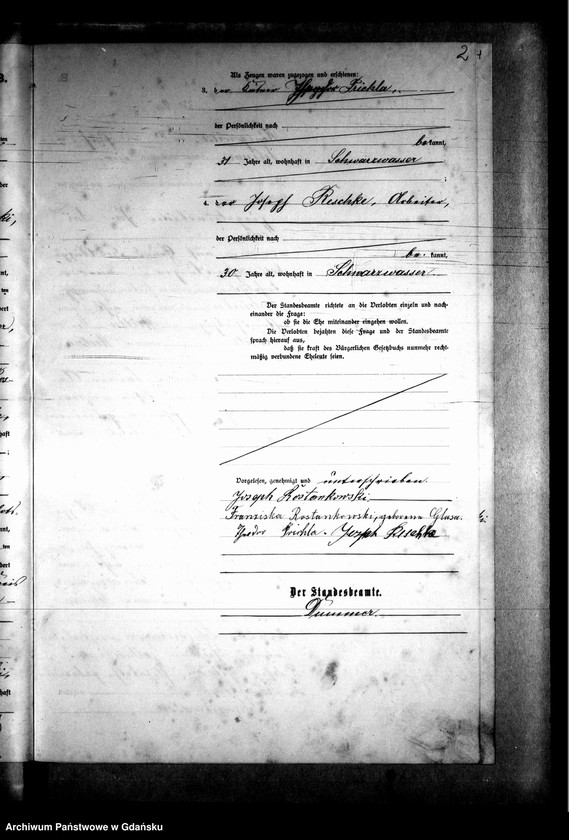 2
Als Zeugen waren zugezogen und erschienen:
3. der Theodor Trichla,
der Persönlichkeit nach
be kannt,
31 Jahre alt, wohnhaft in Schwarzwasser
;
4. der Joseph Reschke, Arbeiter,
der Persönlichkeit nach
be kannt,
30 Jahre alt, wohnhaft in Schwarzwasser
Der Standesbeamte richtete an die Verlobten einzeln und nach-
einander die Frage:
ob sie die Ehe miteinander eingehen wollen.
Die Verlobten bejahten diese Frage und der Standesbeamte
sprach hierauf aus,
daß sie kraft des Bürgerlichen Gesetzbuchs nunmehr recht-
mäßig verbundene Eheleute seien.
Vorgelesen, genehmigt und unterschrieben
Joseph Rostankowski
Franziska Rostankowski, geborene
Theodor Trichla. Joseph Reschke
Der Standesbeamte.
Dummer.
Archiwum Państwowe w Gdańsku